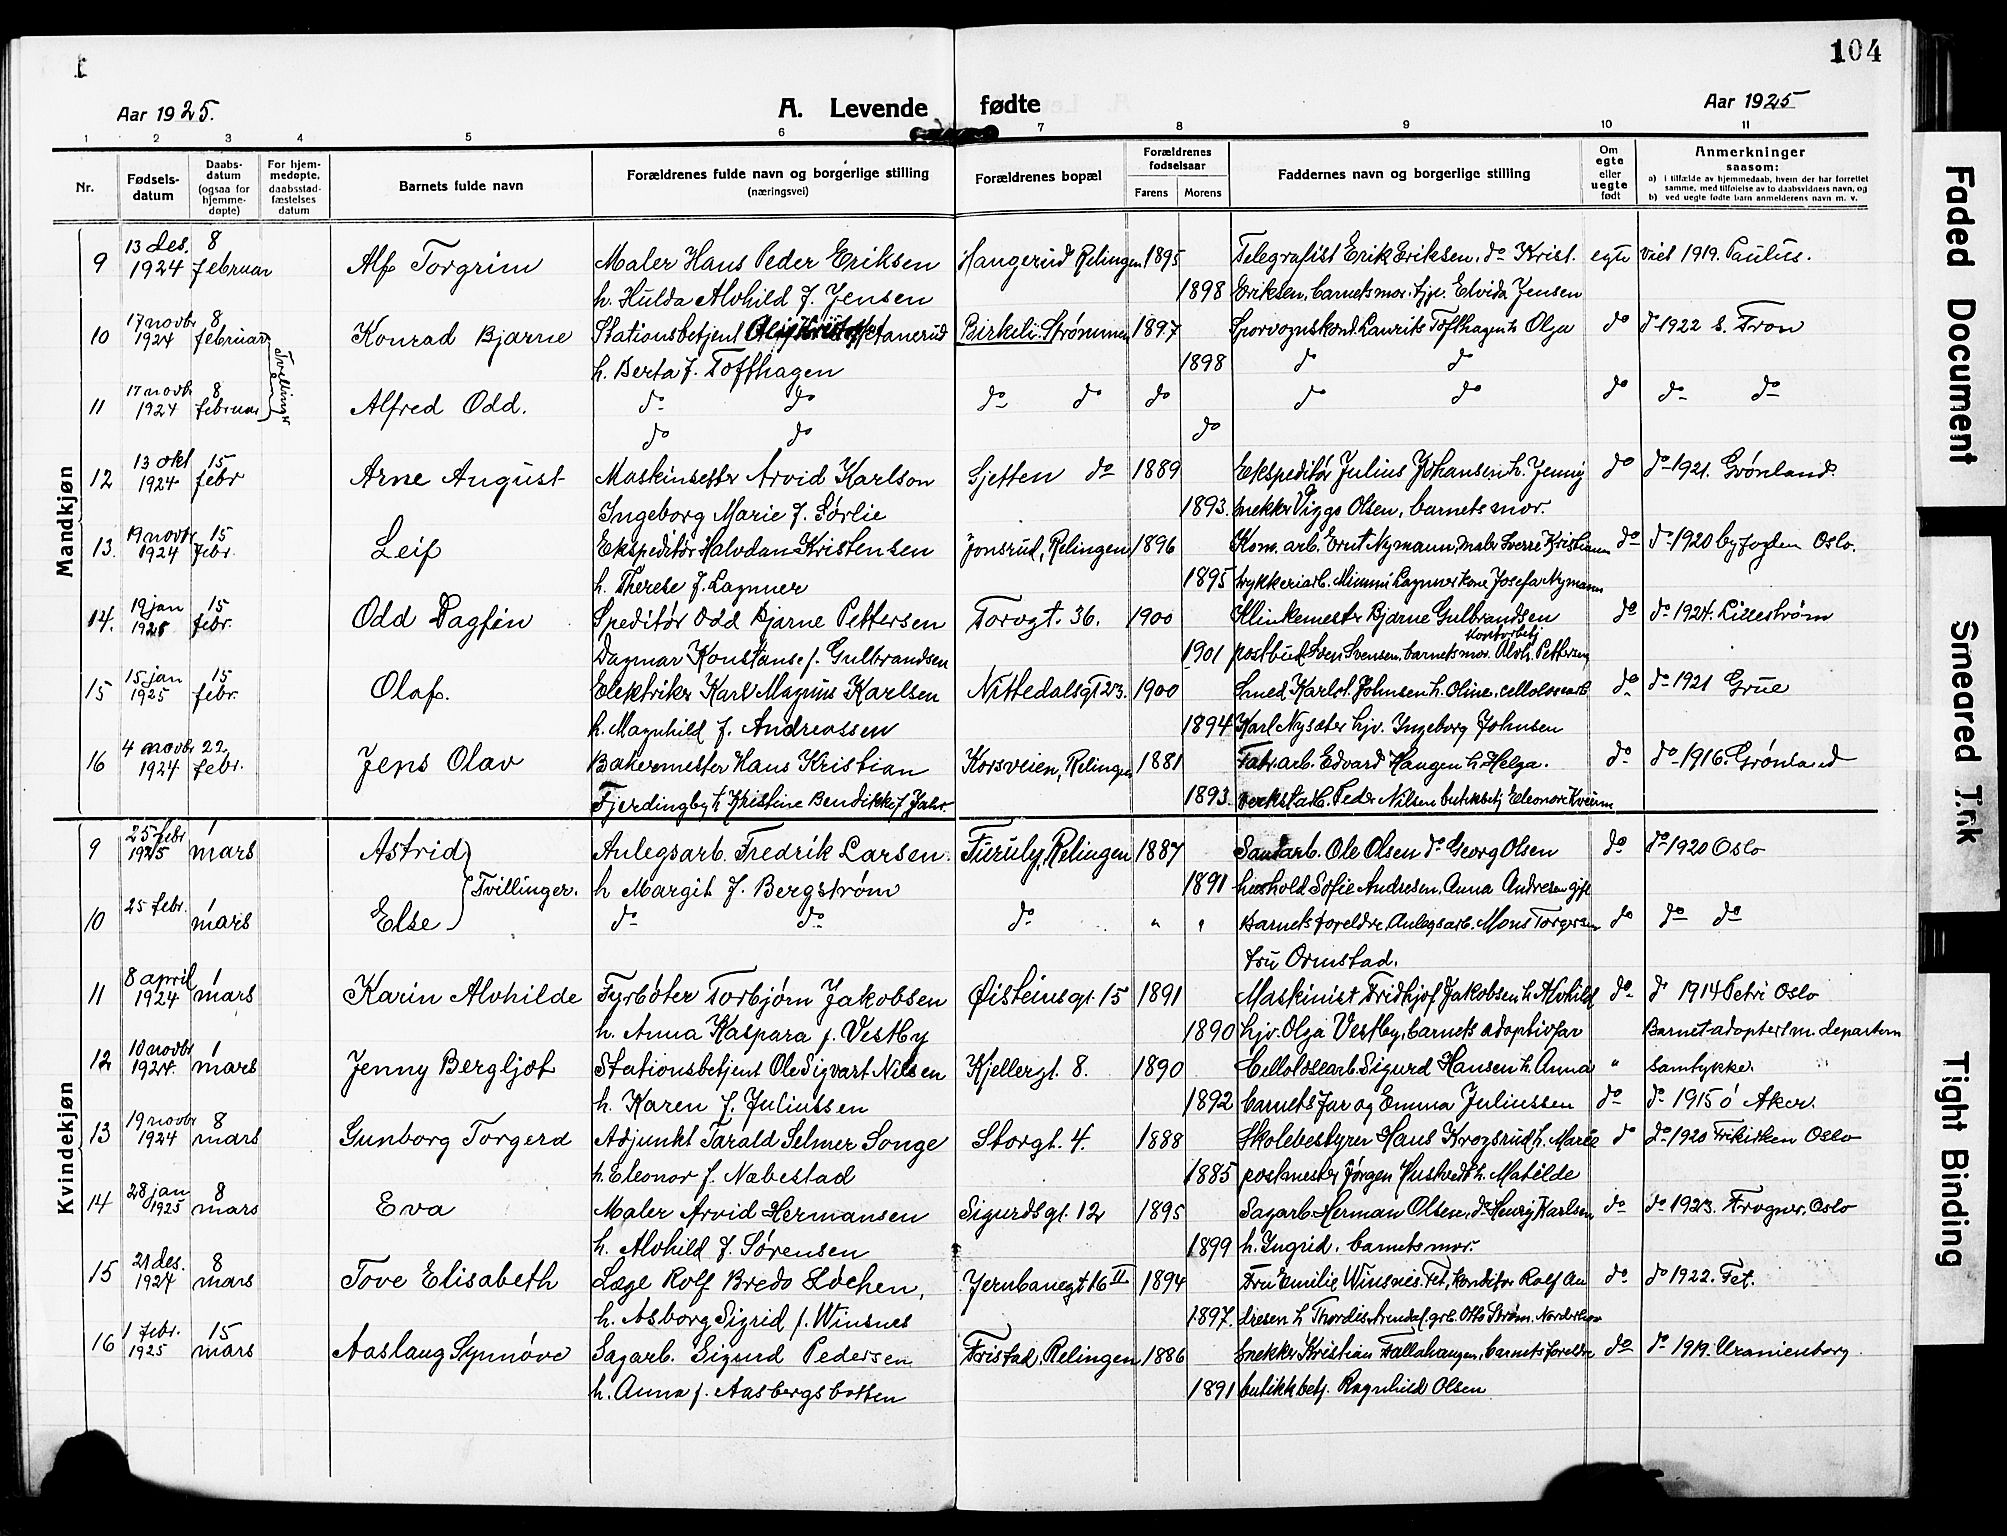 104
Aar 1925.
A. Levende fødte
Aar 1925
1 2 3 4 5 6 7 8 9 10 11
Nr.
Fødsels-
datum
Daabs-
datum
(ogsaa for
hjemme-
døpte)
For hjem-
medøpte,
daabsstad-
fæstelses
datum
Barnets fulde navn
Forældrenes fulde navn og borgerlige stilling
(næringsvei)
Forældrenes bopæl
Forældrenes
fødselsaar
Farens Morens
Faddernes navn og borgerlige stilling
Om
egte
eller
uegte
født
Anmerkninger
saasom:
a) i tilfælde av hjemmedaab, hvem der har forrettet
samme, med tilføielse av to daabsvidners navn, og
b) ved uegte fødte barn anmelderens navn m. v.
Mandkjøn
13 des. 8
9 1924 februar Alf Torgrim Maler Hans Peder Eriksen Hangerud Relingen 1895 Telegrafist Erik Eriksen, do Krist. egte viet 1919. Paulus.
h. Hulda Alvhild f. Jensen 1898 Eriksen, barnets mor. tjp. Elvida Jensen
17 novbr 8
10 1924 februar Konrad Bjarne Stationsbetjent Hanerud Birkeli. Strømmen 1897 Sporvognskond. Laurits Tofthagen h Olga do do 1922 S. Fron
Tvillinger
h. Berta f. Tofthagen 1898 do do
17 novbr 8
11 1924 februar Alfred Odd. do do do do do do do do do do
do do do
13 okt 15
12 1924 febr Arne August Maskinsetter Arvid Karlson Sjetten do 1889 Ekspeditør Julius Johansen h. Jenny do do 1921. Grønland.
Ingeborg Marie f. Sørlie 1893. snekker Viggo Olsen, barnets mor.
19 novbr 15
13. 1924 febr. Leif Ekspeditør Halvdan Kristensen Jonsrud, Relingen 1896 Kom. arb. Ernt Nymann, maler Sverre Kristiann do do 1920 byfogden Oslo.
h. Therese f. Lagnner 1895 trykkeriarb. Mimmi Lagnner kone Josefa Nymann
19 jan 15
14. 1925 febr. Odd Dagfin Speditør Odd Bjarne Pettersen Torvgt. 36. 1900 Klinkemester Bjarne Gulbrandsen do do 1924. Lillestrøm
kontorbetj
Dagmar Konstanse f. Gulbrandsen 1901 postbud Sven Svensen, barnets mor. Alvh. Pettersen
15 jan 15
15 1925 febr. Olaf. Elektriker Karl Magnus Karlsen Nittedalsgt 23. 1900 Smed Karl Johnsen h. Oline, cellolosearb do do 1921 Grue
h. Magnhild f. Andreassen 1894 Karl Nysæter hjv. Ingeborg Johnsen
4 novbr 22
16 1924 febr. Jens Olav Bakermester Hans Kristian Korsveien, Relingen 1881 Fabr. arb. Edvard Haugen h. Helga. do do 1916. Grønland
Fjerdingby h Kristine Bendikke f Jahr 1893. verkstarb. Peder Nilsen butikbetj Eleonore Kveum
Kvindekjøn
25 febr 1
9 1925 mars Astrid Anlegsarb. Fredrik Larsen. Furuly, Relingen 1887 Sandarb. Ole Olsen do Georg Olsen do do 1920 Oslo
Tvillinger.
h Margit f. Bergstrøm 1891 hushold Sofie Andresen, Anna Andresen gift
25 febr. 1
10 mars Else do do do " " Barnets foreldre, Anlegsarb. Mons Torgersen do do do
fru Ormstad.
8 april 1
11 1924 mars Karin Alvhilde Fyrbøter Torbjørn Jakobsen Øisteinsgt. 15 1891 Maskinist Fridhjof Jakobsen h Alvhild do do 1914 Petri Oslo
h. Anna Kaspara f. Vestby 1890 hjv. Olga Vestby, barnets adoptivfar Barnet adoptert m. departem
10 novbr 1
12 1924. mars Jenny Bergljot Stationsbetjent Ole Sigvart Nilsen Kjellergt. 8. 1890 Cellolosearb. Sigurd Hansen h. Anna " samtykke.
h. Karen f. Juliussen 1892 barnets far og Emma Juliussen do do 1915 ø Aker.
19 novbr 8
13 1924 mars Gunborg Torgerd Adjunkt Tarald Selmer Songe Storgt. 4. 1888 Skolebestyrer Hans Krogsrud h. Marie do do 1920 Frikirken Oslo
h. Eleonor f. Næbestad 1885 postmester Jørgen Hustvedt h. Matilde
28 jan 8
14 1925 mars Eva Maler Arvid Hermansen Sigurdsgt. 12 1895 Sagarb. Herman Olsen, do Henry Karlsen do do 1923. Frogner, Oslo
h. Alvhild f. Sørensen 1899 h. Ingrid. barnets mor.
21 des. 8
15 1924 mars Tove Elisabeth Læge Rolf Bredo Løchen, Jernbanegt 16 II 1894 Fru Emilie Winsnes. Fet, konditor Rolf An do do 1922. Fet.
h. Asborg Sigrid f. Winsnes 1897. dresen h Thordis Arendal. grb. Otto Strøm Norderhov
1 febr. 15
16 1925 mars Aaslaug Synnøve Sagarb. Sigurd Pedersen Fristad, Relingen 1886 snekker Kristian Fallahaugen, barnets foreldre do do 1919. Uranienborg
h. Anna f. Aasbergsbotten 1891 butikkbetj. Ragnhild Olsen
Faded Document
Smeared Ink
Tight Binding